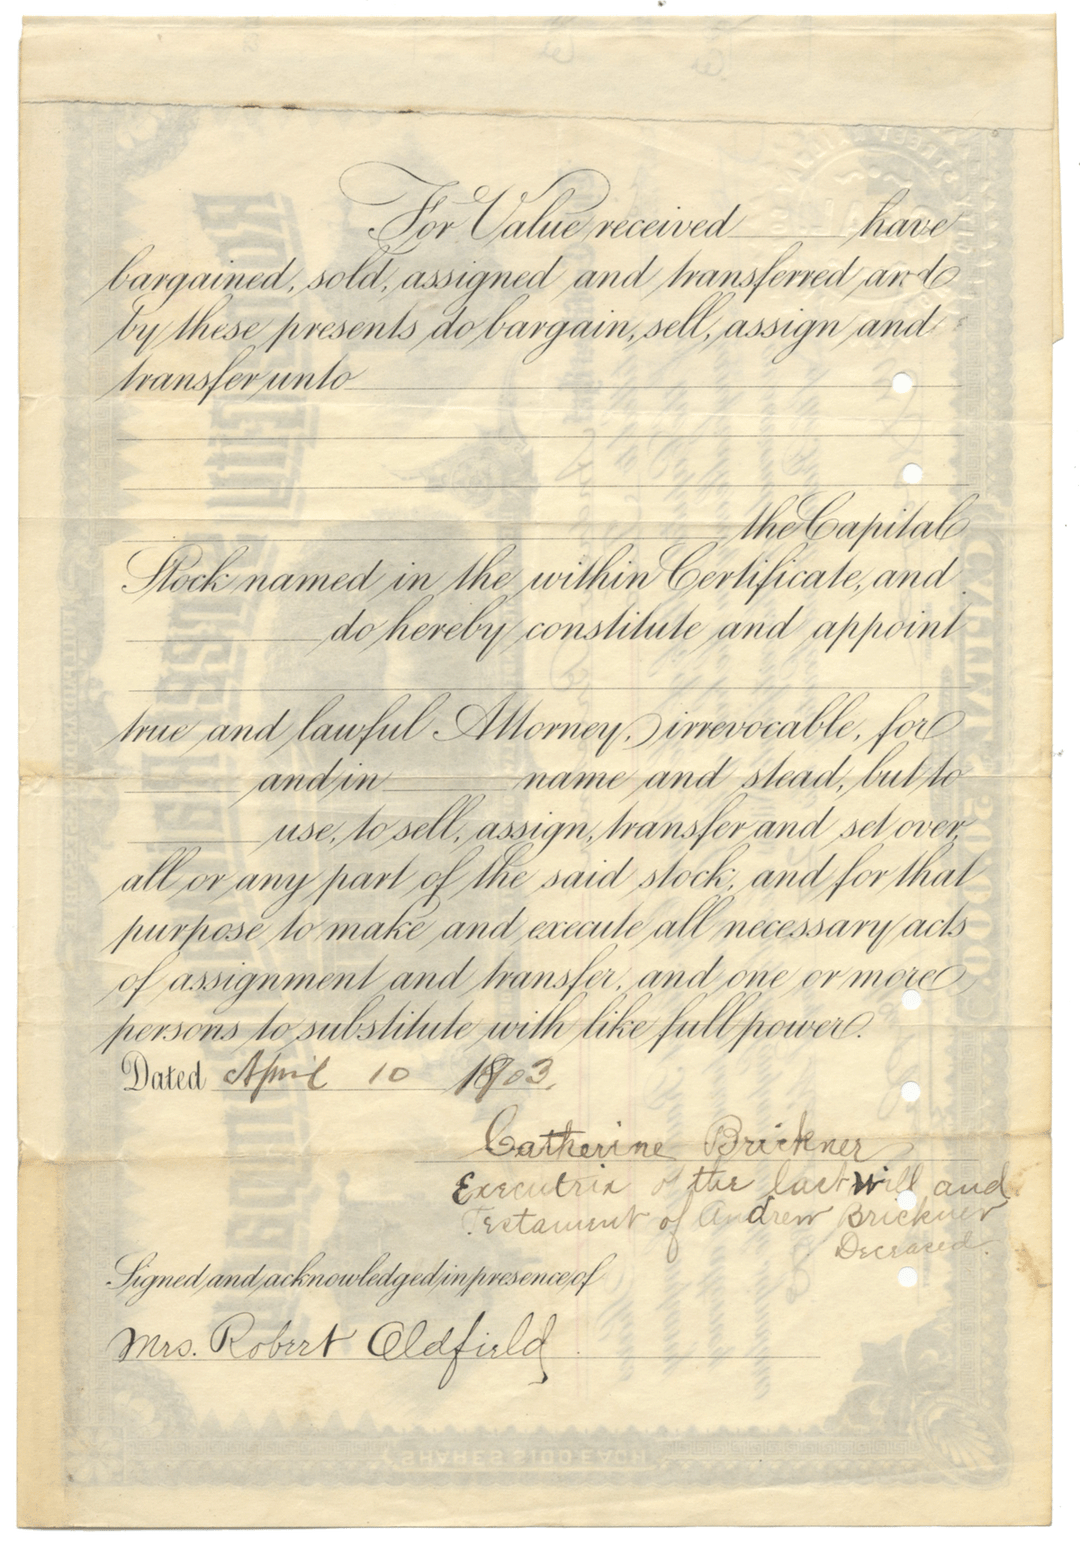 For Value received have
bargained, sold, assigned and transferred and
by these presents do bargain, sell, assign and
transfer unto
the Capital
Stock named in the within Certificate, and
do hereby constitute and appoint
true and lawful Attorney, irrevocable, for
and in name and stead, but to
use, to sell, assign, transfer and set over,
all or any part of the said stock, and for that
purpose to make and execute all necessary acts
of assignment and transfer, and one or more
persons to substitute with like full power.
Dated April 10 1903.
Catherine Brickner
Executrix of the last will and
Testament of Andrew Brickner
Deceased.
Signed and acknowledged in presence of
Mrs. Robert Oldfield
SHARES $100 EACH